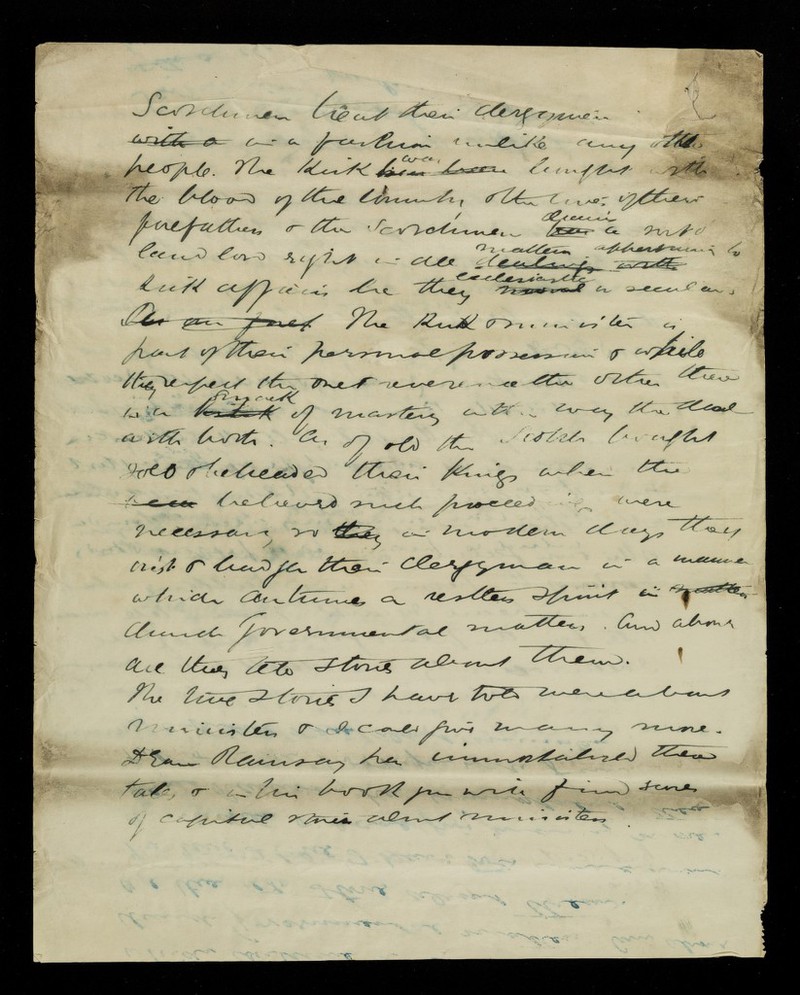 Scotchmen treat their clergymen
with a in a fashion unlike any other
people. The Kirk was has been bought with
the blood of the Country & the lives of their
forefathers & the Scotchmen has a sort of
land lord right in all dealings with matters appertaining to
Kirk affairs be they moral ecclesiastic or secular.
As in fact The Kirk & minister is
part of their personal possession & while
they respect the one & reverence the other there
is a of mastery in the way they deal
with both. As of old the Scotch bought
sold & beheaded their Kings when the
believed such proceedings were
necessary, so they in modern days they
their clergyman in a manner
which a restless spirit in matters
church Governmental matters. And above
all they tell stories about them.
The two stories I have told were about
ministers & I could give many more.
Dean Ramsay has immortalised these
tales & in his book you will find scores
of capital stories about ministers.